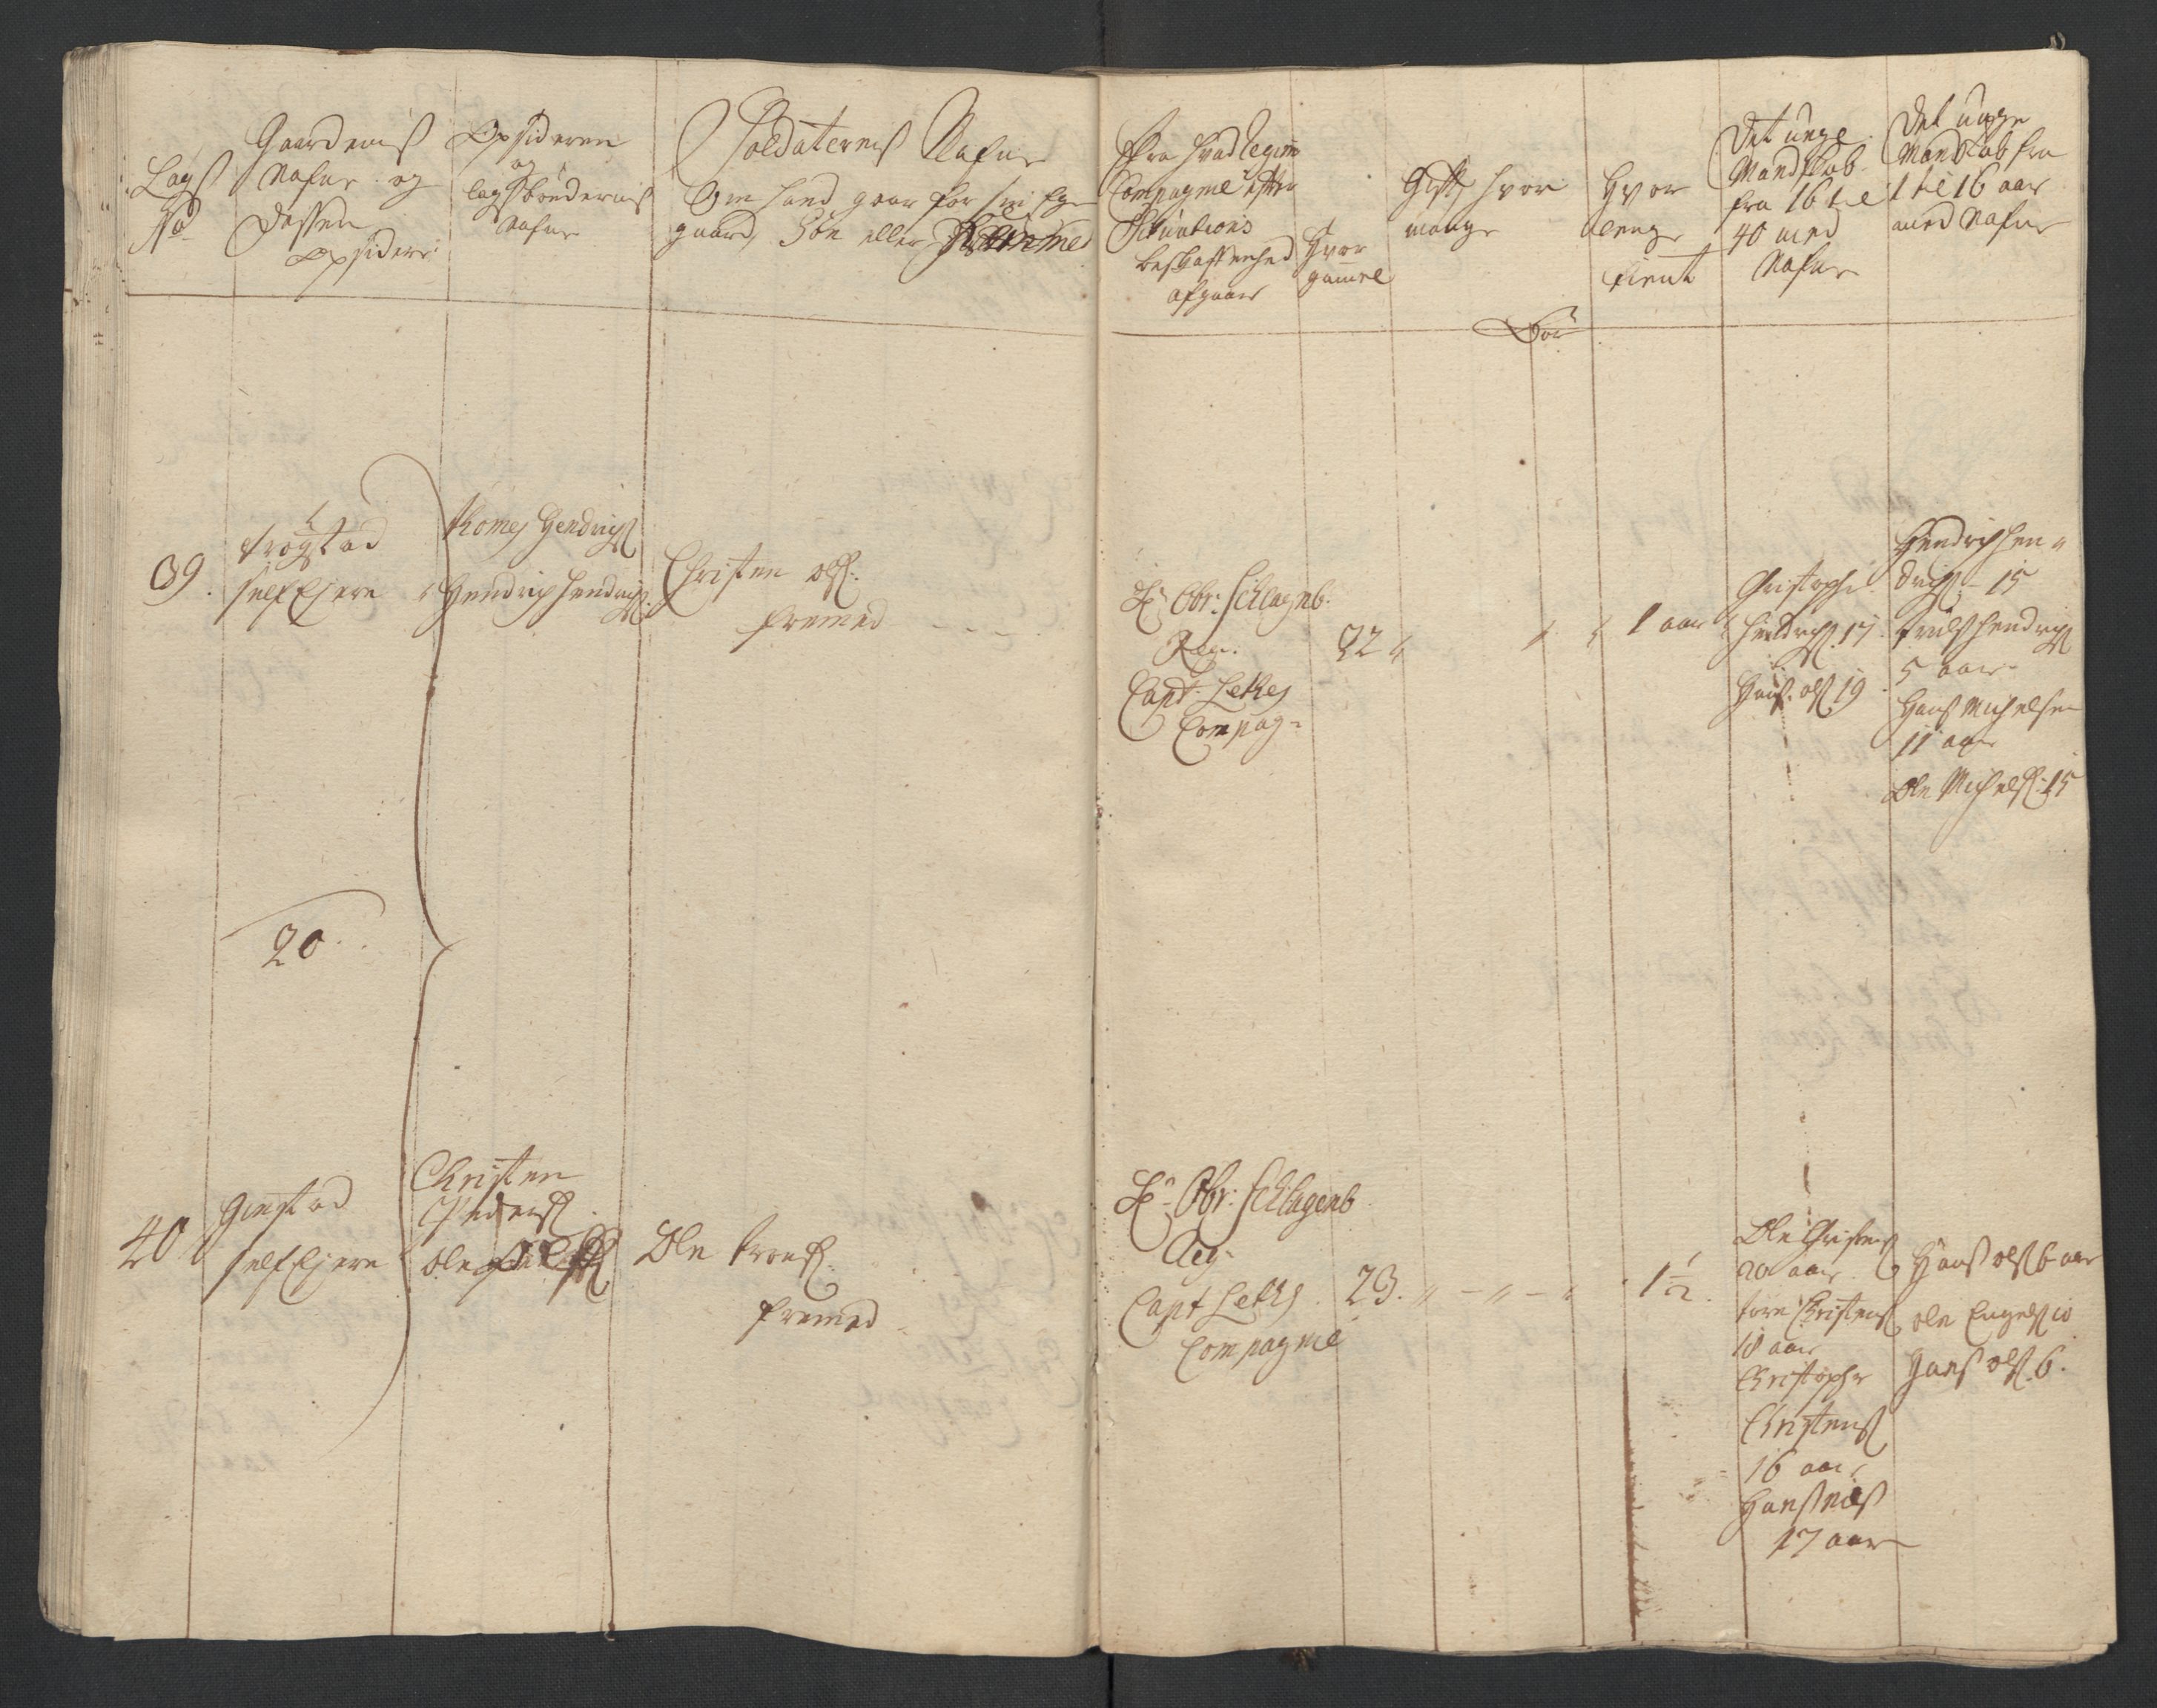 Lags
No
Gaardens
Nafne og
Dessen
opsidere
Opsideren
og
lagsbøndernis
Nafne
Soldaternis Nafne
Om hand gaar for sin Egen
gaard, Søn eller fremmed
Fra hvad Regim
Compagnie efter
Situations
beskaffenhed
afgaar
Hvor
gamel
Gift, hvor
mange
Hvor
lenge
tient
Det unge
Mandskab
fra 16 til
40 med
Nafne
Det unge
Mandskab fra
1 til 16 aar
med Nafne
39.
frogstad
selfEjere
Thomes Hendrichs
Hendrich Hendrichs.
Christen ols:
fremed
Lt Obr: Schlagenb:
Reg:
Capt: Letkes
Compag=
22
1 aar
Christopher
Hendrichs: 17
Hans: ols 19
Hendrich Hen=
drichs - 15
Truls Hendrichs
5 aar
Hans Michelsen
11 aar
Ole Michels: 15
20
40
Gimstad
selfEjere
Christen
Peders
Ole
Ole
fremed
Lt Obr: Schlagenb
Reg:
Capt Letkes
Compagnie
23.
1 1/2.
Ole Christens
20 aar
tore Christens
18 aar
Christopher
Christens
16 aar
Hans Niels
17 aar
Hans ols 6 aar
ole Engels 10
Hans ols 6.